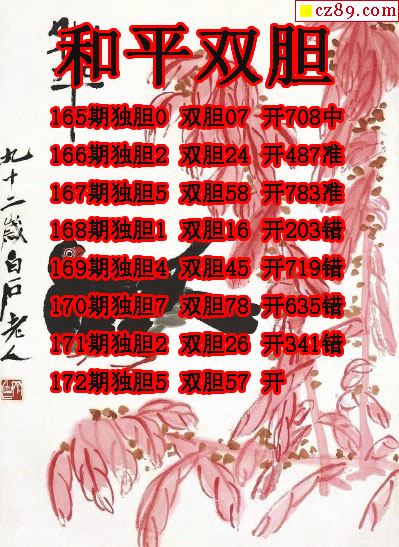 cz89.com
和平双胆
165期独胆0 双胆07 开708中
166期独胆2 双胆24 开487准
167期独胆5 双胆58 开783准
168期独胆1 双胆16 开203错
169期独胆4 双胆45 开719错
170期独胆7 双胆78 开635错
171期独胆2 双胆26 开341错
172期独胆5 双胆57 开
九十二歲白石老人